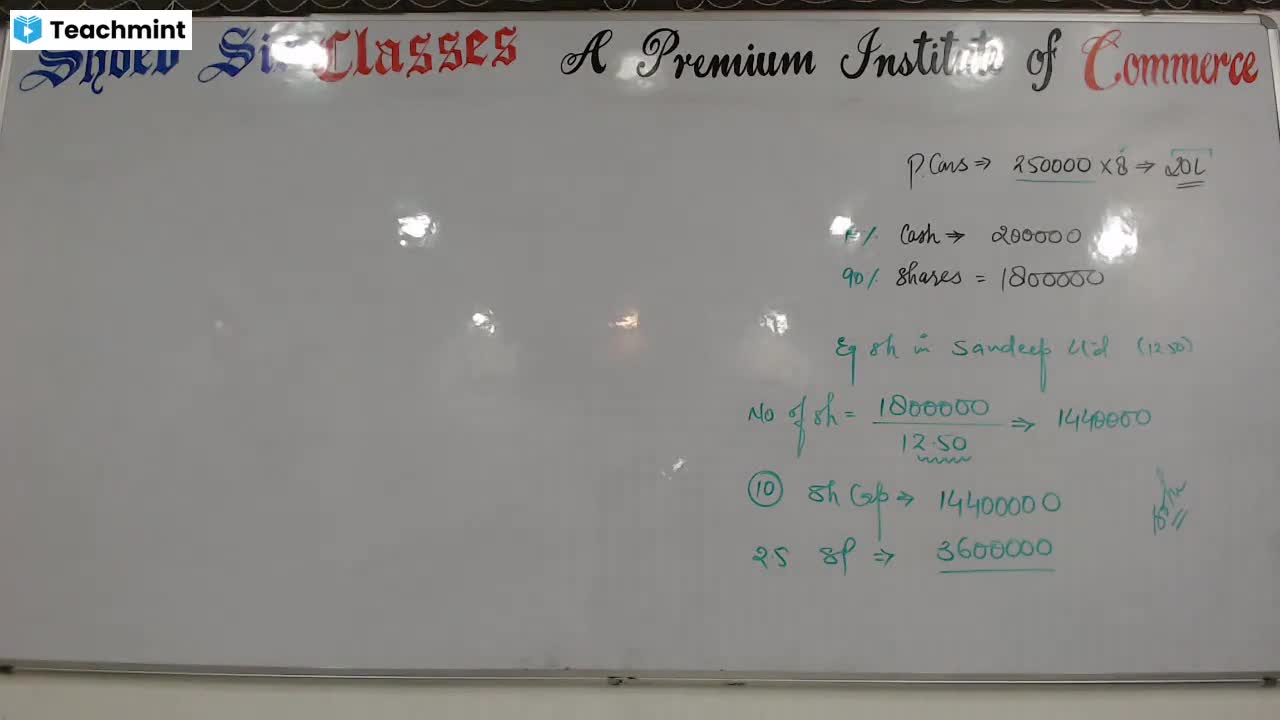 Teachmint
Shoeb Sir Classes A Premium Institute of Commerce
P. Cons ⇒ 250000 × 8 ⇒ 20L
% Cash ⇒ 200000
90% Shares = 1800000
Eq sh in Sandeep Ltd (12.50)
No of sh = 1800000 / 12.50 ⇒ 1440000
10 Sh Cap ⇒ 14400000
2.5 SP ⇒ 3600000